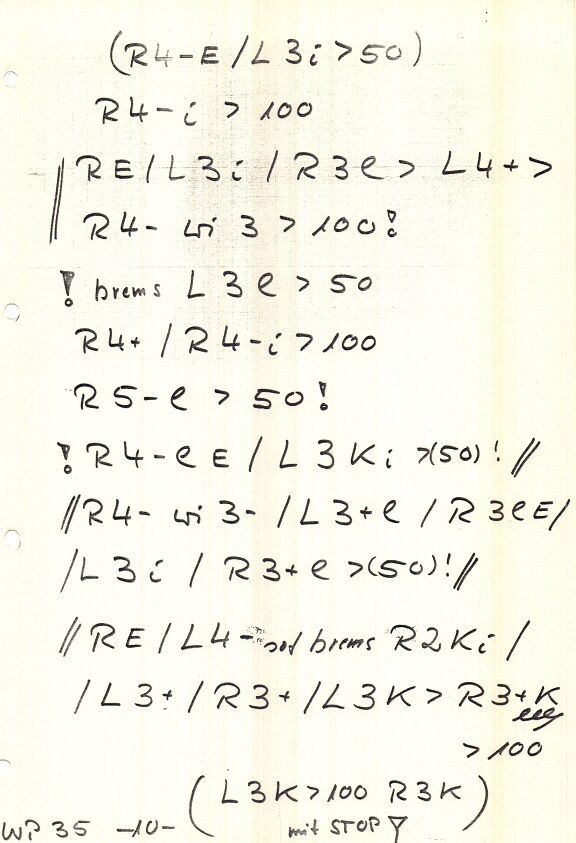 (R4-E/L3i>50)
R4-i > 100
‖RE/L3i/R3e> L4+>
R4- wi 3 > 100!
! brems L3e > 50
R4+/R4-i>100
R5-e > 50!
!R4-eE/L3Ki >(50)!//
//R4- wi 3-/L3+e/R3eE/
/L3i/R3+e>(50)!//
//RE/L4- brems R2Ki/
/L3+/R3+/L3K> R3+K
>100
(L3K>100 R3K)
mit STOP
WP 35 -10-